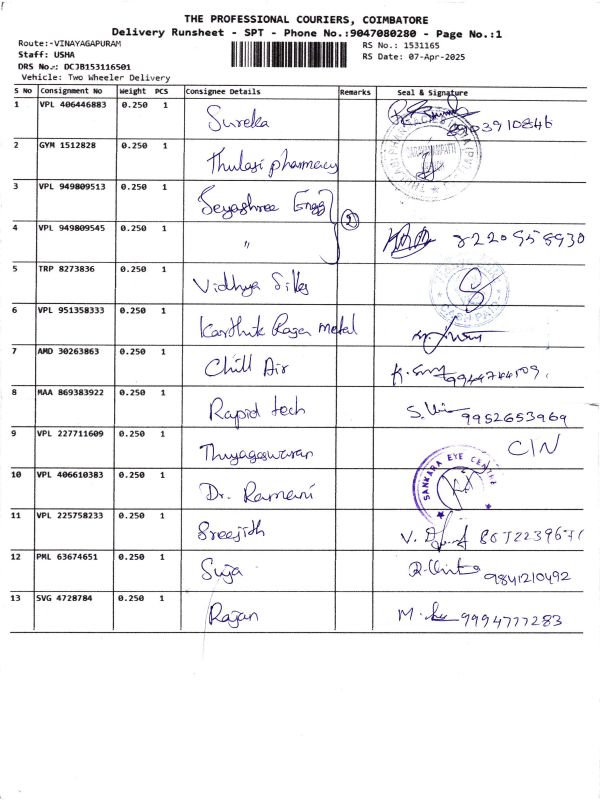 THE PROFESSIONAL COURIERS, COIMBATORE
Delivery Runsheet - SPT - Phone No.:9047080280 - Page No.:1
Route:-VINAYAGAPURAM
Staff: USHA
DRS No.: DCJB153116501
Vehicle: Two Wheeler Delivery
RS No.: 1531165
RS Date: 07-Apr-2025
S No Consignment No Weight PCS Consignee Details Remarks Seal & Signature
1 VPL 406446883 0.250 1 Sureka 8903910846
2 GYM 1512828 0.250 1 Thulasi pharmacy
3 VPL 949809513 0.250 1 Seyashree Engg
4 VPL 949809545 0.250 1 " 2 8220958930
5 TRP 8273836 0.250 1 Vidhya Silks
6 VPL 951358333 0.250 1 Karthik Raja metal
7 AMD 30263863 0.250 1 Chill Air
8 MAA 869383922 0.250 1 Rapid tech 9952653969
9 VPL 227711609 0.250 1 Thyagaswaran C/N
10 VPL 406610383 0.250 1 Dr. Ramani SANKARA EYE CENTRE
11 VPL 225758233 0.250 1 Sreejith
12 PML 63674651 0.250 1 Suja 9841210492
13 SVG 4728784 0.250 1 Rajan 9994777283